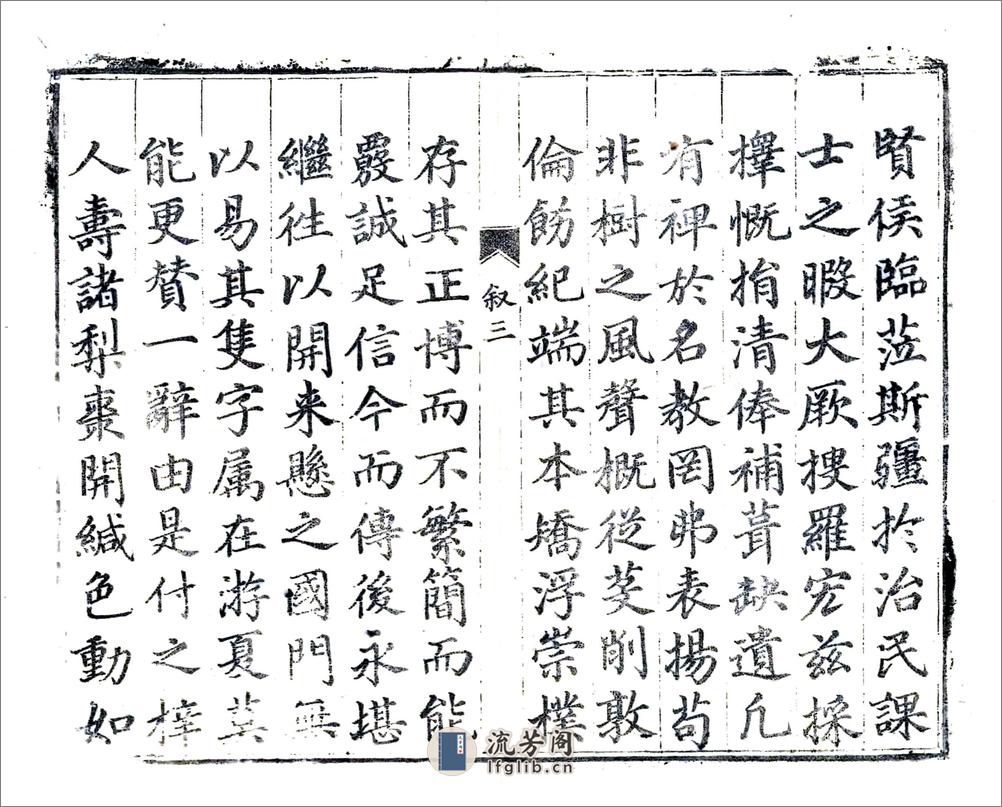 賢侯臨蒞斯疆扵治民課
士之暇大厥搜羅宏玆採
擇慨捐清俸補葺缺遺凢
有裨於名教罔弗表揚苟
非樹之風聲概從芟削敦
倫飭紀端其本矯浮崇樸
叙三
存其正博而不繁簡而能
覈誠足信今而傳後永堪
繼徃以開来懸之國門無
以易其隻字属在游夏莫
能更贊一辭由是付之梓
人壽諸梨棗開緘色動如
流芳阁
lfglib.cn